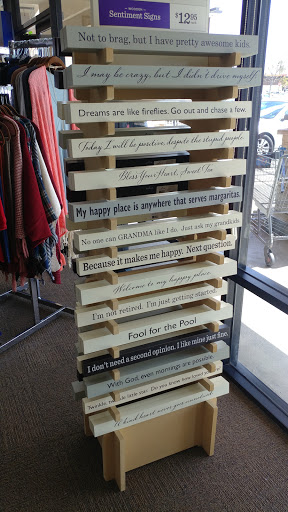 WOODEN
Sentiment Signs
$12.95
Not to brag, but I have pretty awesome kids.
I may be crazy, but I didn't drive myself.
Dreams are like fireflies. Go out and chase a few.
Today I will be positive, despite the stupid people.
Bless Your Heart, Sweet Tea
My happy place is anywhere that serves margaritas.
No one can GRANDMA like I do. Just ask my grandkids
Because it makes me happy. Next question.
Welcome to my happy place.
I'm not retired. I'm just getting started.
Fool for the Pool
I don't need a second opinion. I like mine just fine.
With God, even mornings are possible.
Twinkle, twinkle little star. Do you know how loved you
A kind heart never goes